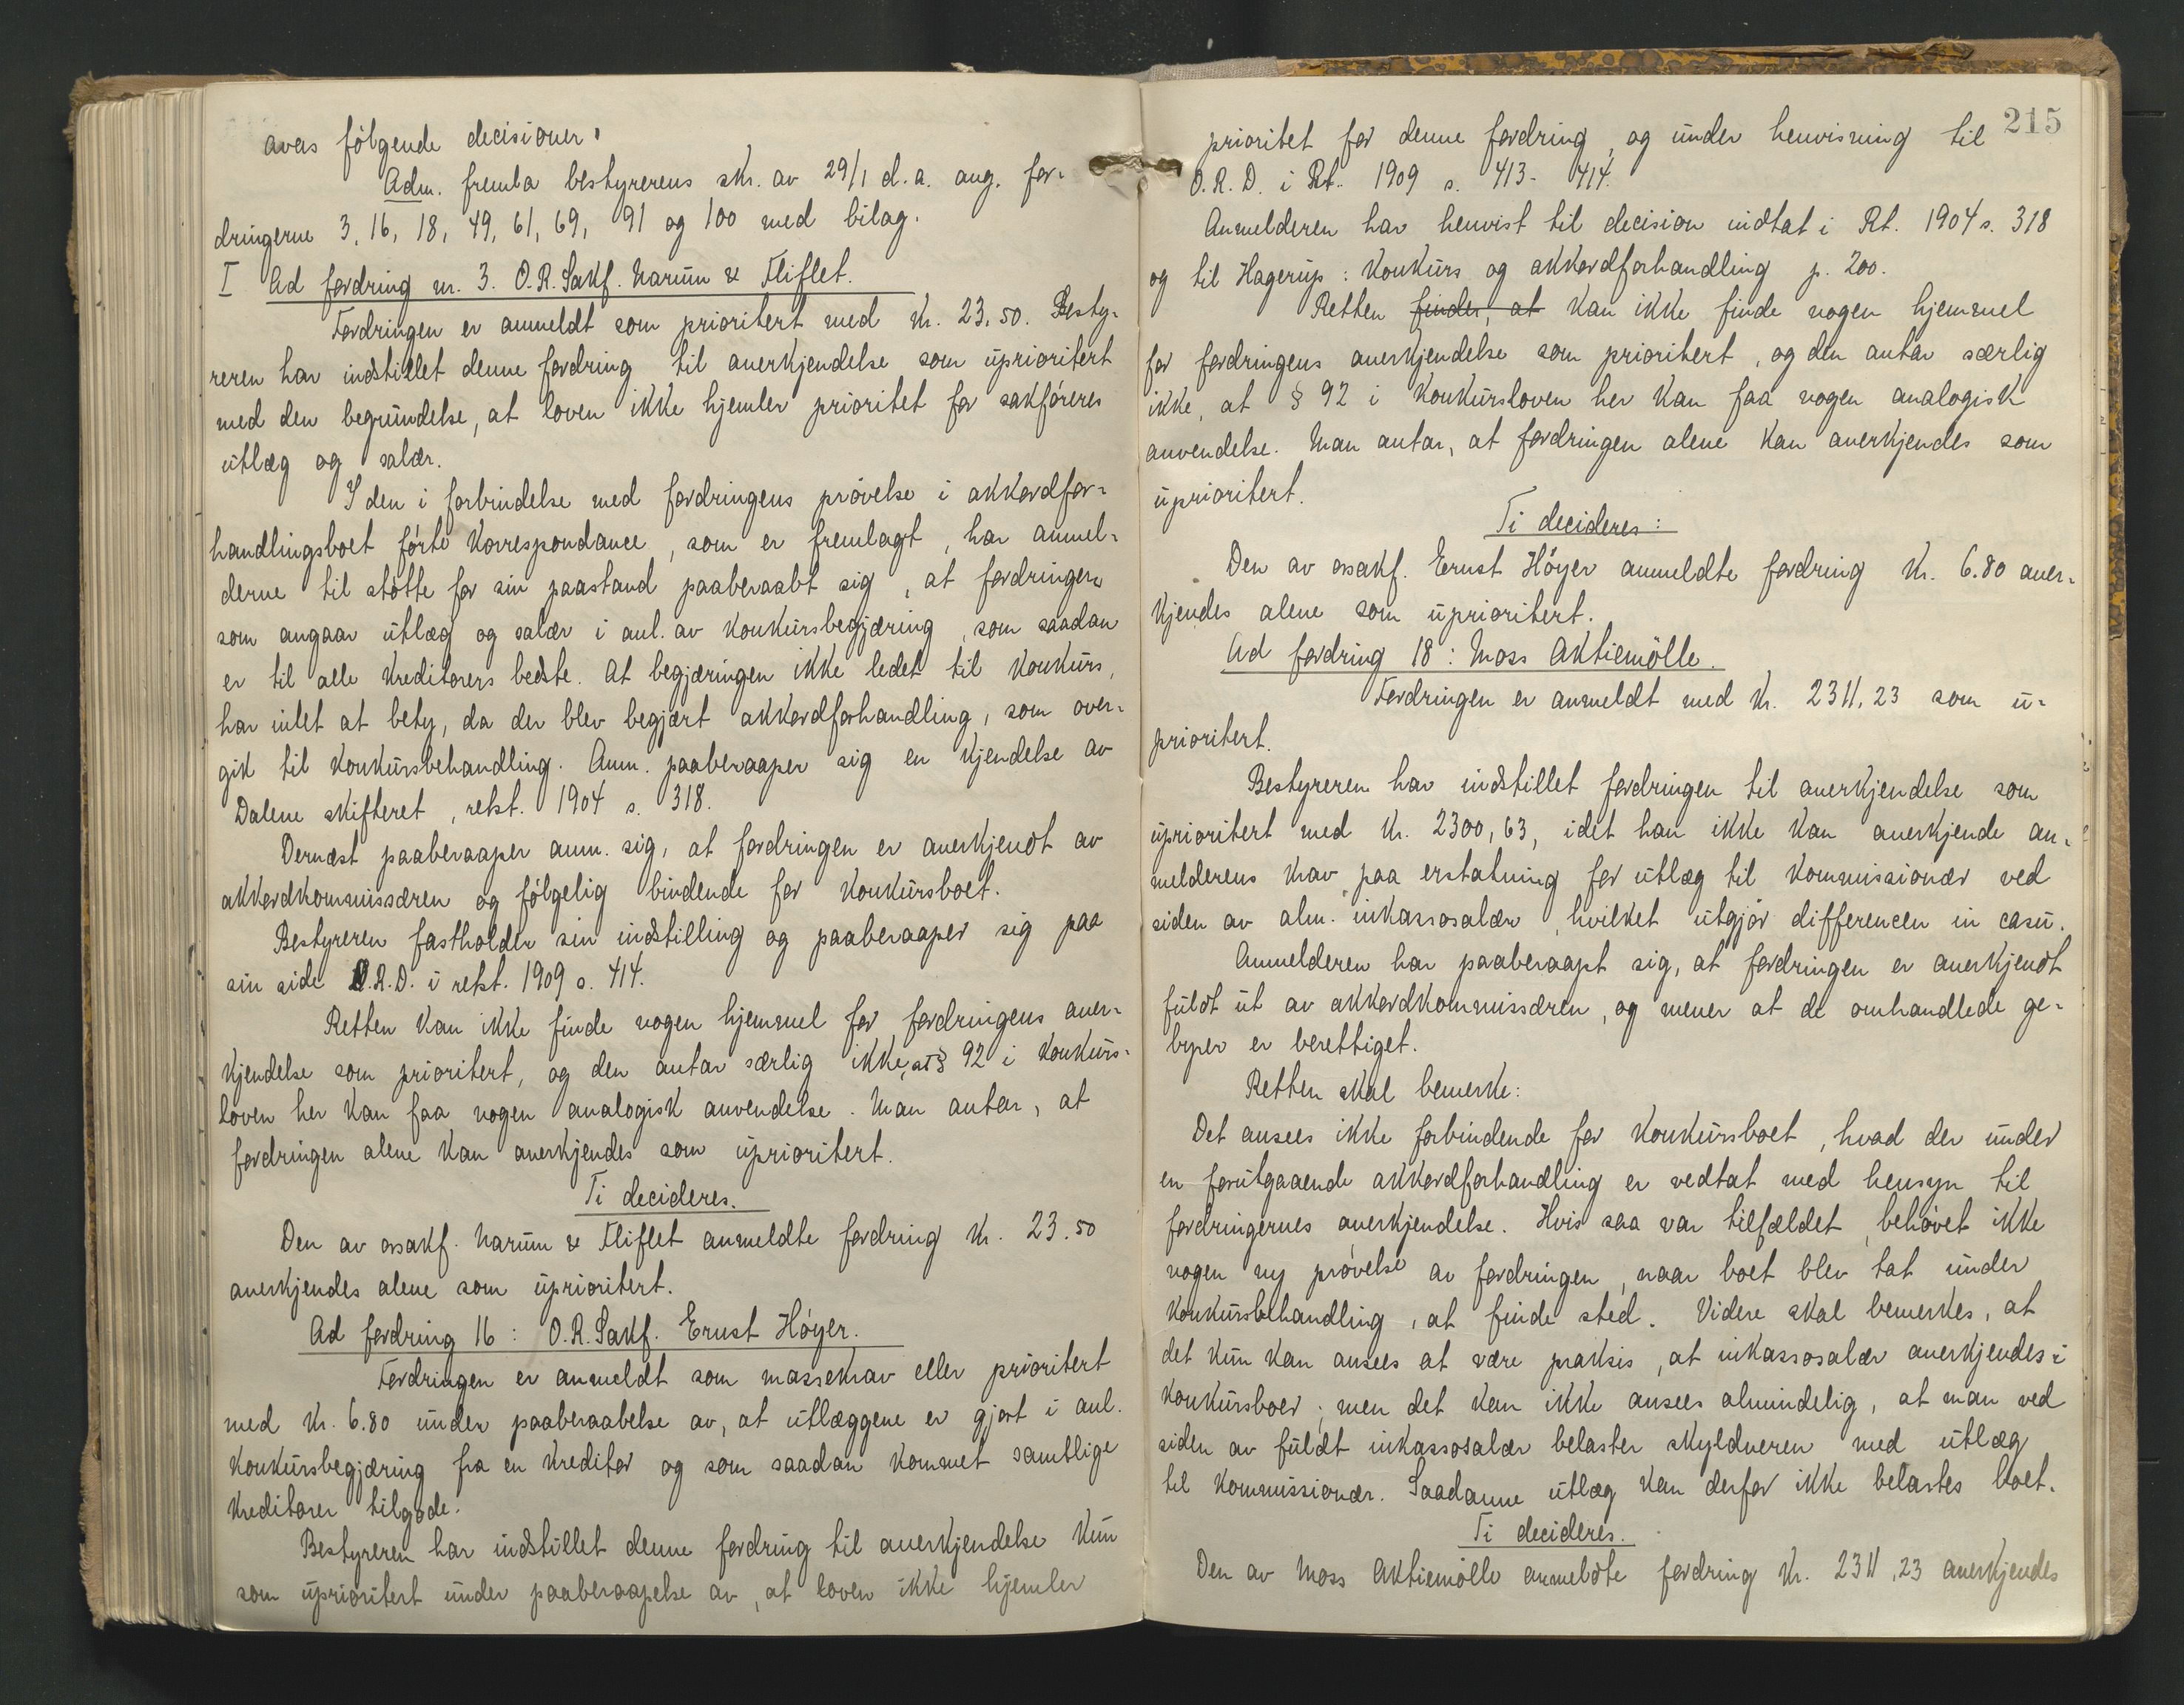 avas følgende decisioner.
Adm. fremla bestyrerens skr. av 29/1 d.a. ang. for-
dringerne 3, 16, 18, 49, 61, 69, 91 og 100 med bilag.
I Ad fordring nr. 3. O.R.Sakf. Harum & Fliflet.
Fordringen er anmeldt som prioritert med kr. 23.50. Besty-
reren har indstillet denne fordring til anerkjendelse som uprioritert
med den begrundelse, at loven ikke hjemler prioritet for sakføreres
utlæg og salær.
I den i forbindelse med fordringens prøvelse i akkordfor-
handlingsboet førte korrespondance, som er fremlagt, har anmel-
derne til støtte for sin paastand paaberaabt sig, at fordringen
som angaar utlæg og salær i anl. av konkursbegjæring, som saadan
er til alle kreditorers bedste. At begjæringen ikke ledet til konkurs,
har intet at bety, da der blev begjært akkordforhandling, som over-
gik til konkursbehandling. Anm. paaberaaper sig en kjendelse av
Dalene skifteret, retst. 1904 s. 318.
Dernæst paaberaaper anm. sig, at fordringen er anerkjendt av
akkordkommissæren og følgelig bindende for konkursboet.
Bestyreren fastholder sin indstilling og paaberaaper sig paa
sin side O.R.D. i retst. 1909 s. 414.
Retten kan ikke finde nogen hjemmel for fordringens aner-
kjendelse som prioritert, og den antar særlig ikke, at § 92 i konkurs-
loven her kan faa nogen analogisk anvendelse. Man antar, at
fordringen alene kan anerkjendes som uprioritert.
Ti decideres.
Den av orsakf. Harum & Fliflet anmeldte fordring kr. 23.50
anerkjendes alene som uprioritert.
Ad fordring 16: O.R.Sakf. Ernst Høyer.
Fordringen er anmeldt som massekrav eller prioritert
med kr. 6.80 under paaberaabelse av, at utlæggene er gjort i anl.
konkursbegjæring fra en kreditor og som saadan kommet samtlige
kreditorer tilgode.
Bestyreren har indstillet denne fordring til anerkjendelse kun
som uprioritert under paaberaapelse av, at loven ikke hjemler
215
prioritet for denne fordring, og under henvisning til
O.R.D. i Rt. 1909 s. 413-414.
Anmelderen har henvist til decision indtat i Rt. 1904 s. 318
og til Hagerup: Konkurs og akkordforhandling p. 200.
Retten finder, at kan ikke finde nogen hjemmel
for fordringens anerkjendelse som prioritert, og den antar særlig
ikke, at § 92 i konkursloven her kan faa nogen analogisk
anvendelse. Man antar, at fordringen alene kan anerkjendes som
uprioritert.
Ti decideres:
Den av orsakf. Ernst Høyer anmeldte fordring kr. 6.80 aner-
kjendes alene som uprioritert.
Ad fordring 18: Moss Aktiemølle.
Fordringen er anmeldt med kr. 2311,23 som u-
prioritert.
Bestyreren har indstillet fordringen til anerkjendelse som
uprioritert med kr. 2300,63, idet han ikke kan anerkjende an-
melderens krav paa erstatning for utlæg til kommissionær ved
siden av alm. inkassosalær, hvilket utgjør differencen in casu.
Anmelderen har paaberaapt sig, at fordringen er anerkjendt
fuldt ut av akkordkommissæren, og mener at de omhandlede ge-
byrer er berettiget.
Retten skal bemerke:
Det ansees ikke forbindende for konkursboet, hvad der under
en forutgaaende akkordforhandling er vedtat med hensyn til
fordringernes anerkjendelse. Hvis saa var tilfældet, behøvet ikke
nogen ny prøvelse av fordringen, naar boet blev tat under
konkursbehandling, at finde sted. Videre skal bemerkes, at
det kun kan ansees at være praksis, at inkassosalær anerkjendes i
konkursboer; men det kan ikke ansees almindelig, at man ved
siden av fuldt inkassosalær belaster skyldneren med utlæg
til kommissionær. Saadanne utlæg kan derfor ikke belastes boet.
Ti decideres.
Den av Moss Aktiemølle anmeldte fordring kr. 2311,23 anerkjendes